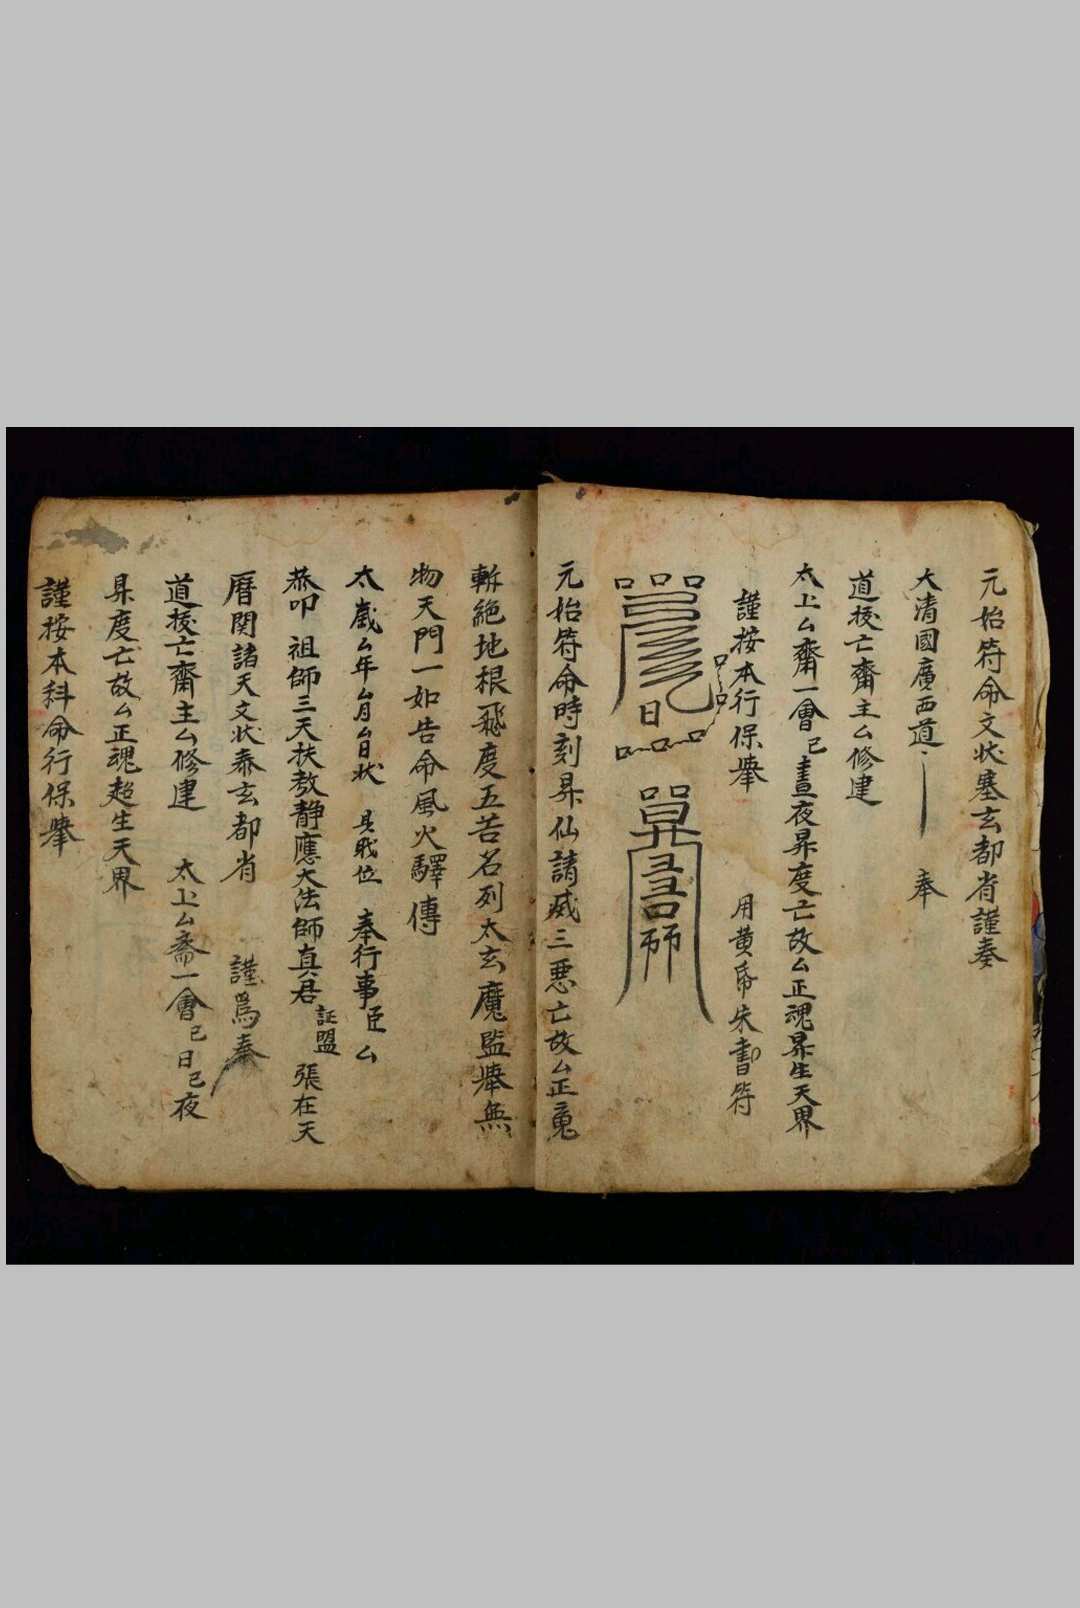 元始符命文狀塞玄都省謹奏
大清國廣西道 奉
道㧞亡齋主厶修建
太上厶齋一會已晝夜昇度亡故厶正魂昇生天界
謹按本行保舉 用黄帋朱書符
元始符命時刻昇仙請威三惡亡故厶正䰟
斬絕地根飛度五苦名列太玄魔監舉無
物天門一如告命風火驛傳
太歲厶年厶月厶日狀 具戝位 奉行事臣厶
恭叩 祖師三天扶教靜應大法師真君 証盟 張在天
曆関諸天文状奏玄都省 謹爲奏
道㧞亡齋主厶修建 太上厶斋一會已日已夜
昇度亡故厶正魂超生天界
謹按本科命行保舉